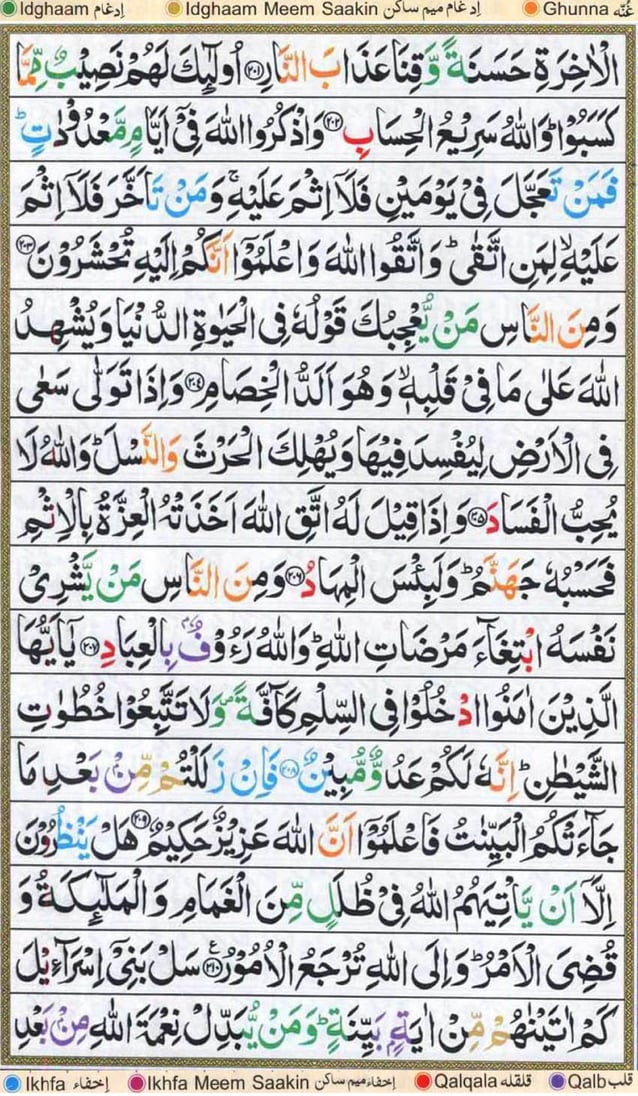 Idghaam إدغام Idghaam Meem Saakin إدغام ميم ساكن Ghunna غُنَّه
الْاٰخِرَةِ حَسَنَةً وَّقِنَا عَذَابَ النَّارِ ۝۲۰۱ اُولٰٓئِكَ لَهُمْ نَصِيْبٌ مِّمَّا
كَسَبُوْا ؕ وَاللّٰهُ سَرِيْعُ الْحِسَابِ ۝۲۰۲ وَاذْكُرُوا اللّٰهَ فِيْۤ اَيَّامٍ مَّعْدُوْدٰتٍ ؕ
فَمَنْ تَعَجَّلَ فِيْ يَوْمَيْنِ فَلَاۤ اِثْمَ عَلَيْهِ ۚ وَمَنْ تَاَخَّرَ فَلَاۤ اِثْمَ
عَلَيْهِ ۙ لِمَنِ اتَّقٰى ؕ وَاتَّقُوا اللّٰهَ وَاعْلَمُوْۤا اَنَّكُمْ اِلَيْهِ تُحْشَرُوْنَ ۝۲۰۳
وَمِنَ النَّاسِ مَنْ يُّعْجِبُكَ قَوْلُهٗ فِي الْحَيٰوةِ الدُّنْيَا وَيُشْهِدُ
اللّٰهَ عَلٰى مَا فِيْ قَلْبِهٖ ۙ وَهُوَ اَلَدُّ الْخِصَامِ ۝۲۰۴ وَاِذَا تَوَلّٰى سَعٰى
فِي الْاَرْضِ لِيُفْسِدَ فِيْهَا وَيُهْلِكَ الْحَرْثَ وَالنَّسْلَ ؕ وَاللّٰهُ لَا
يُحِبُّ الْفَسَادَ ۝۲۰۵ وَاِذَا قِيْلَ لَهُ اتَّقِ اللّٰهَ اَخَذَتْهُ الْعِزَّةُ بِالْاِثْمِ
فَحَسْبُهٗ جَهَنَّمُ ؕ وَلَبِئْسَ الْمِهَادُ ۝۲۰۶ وَمِنَ النَّاسِ مَنْ يَّشْرِيْ
نَفْسَهُ ابْتِغَآءَ مَرْضَاتِ اللّٰهِ ؕ وَاللّٰهُ رَءُوْفٌۢ بِالْعِبَادِ ۝۲۰۷ يٰۤاَيُّهَا
الَّذِيْنَ اٰمَنُوا ادْخُلُوْا فِي السِّلْمِ كَآفَّةً ۪ وَّلَا تَتَّبِعُوْا خُطُوٰتِ
الشَّيْطٰنِ ؕ اِنَّهٗ لَكُمْ عَدُوٌّ مُّبِيْنٌ ۝۲۰۸ فَاِنْ زَلَلْتُمْ مِّنْۢ بَعْدِ مَا
جَآءَتْكُمُ الْبَيِّنٰتُ فَاعْلَمُوْۤا اَنَّ اللّٰهَ عَزِيْزٌ حَكِيْمٌ ۝۲۰۹ هَلْ يَنْظُرُوْنَ
اِلَّاۤ اَنْ يَّاْتِيَهُمُ اللّٰهُ فِيْ ظُلَلٍ مِّنَ الْغَمَامِ وَالْمَلٰٓئِكَةُ وَ
قُضِيَ الْاَمْرُ ؕ وَاِلَى اللّٰهِ تُرْجَعُ الْاُمُوْرُ ۝۲۱۰ ع سَلْ بَنِيْۤ اِسْرَآءِيْلَ
كَمْ اٰتَيْنٰهُمْ مِّنْ اٰيَةٍۭ بَيِّنَةٍ ؕ وَمَنْ يُّبَدِّلْ نِعْمَةَ اللّٰهِ مِنْۢ بَعْدِ
Ikhfa إخفاء Ikhfa Meem Saakin إخفاء ميم ساكن Qalqala قلقله Qalb قلب